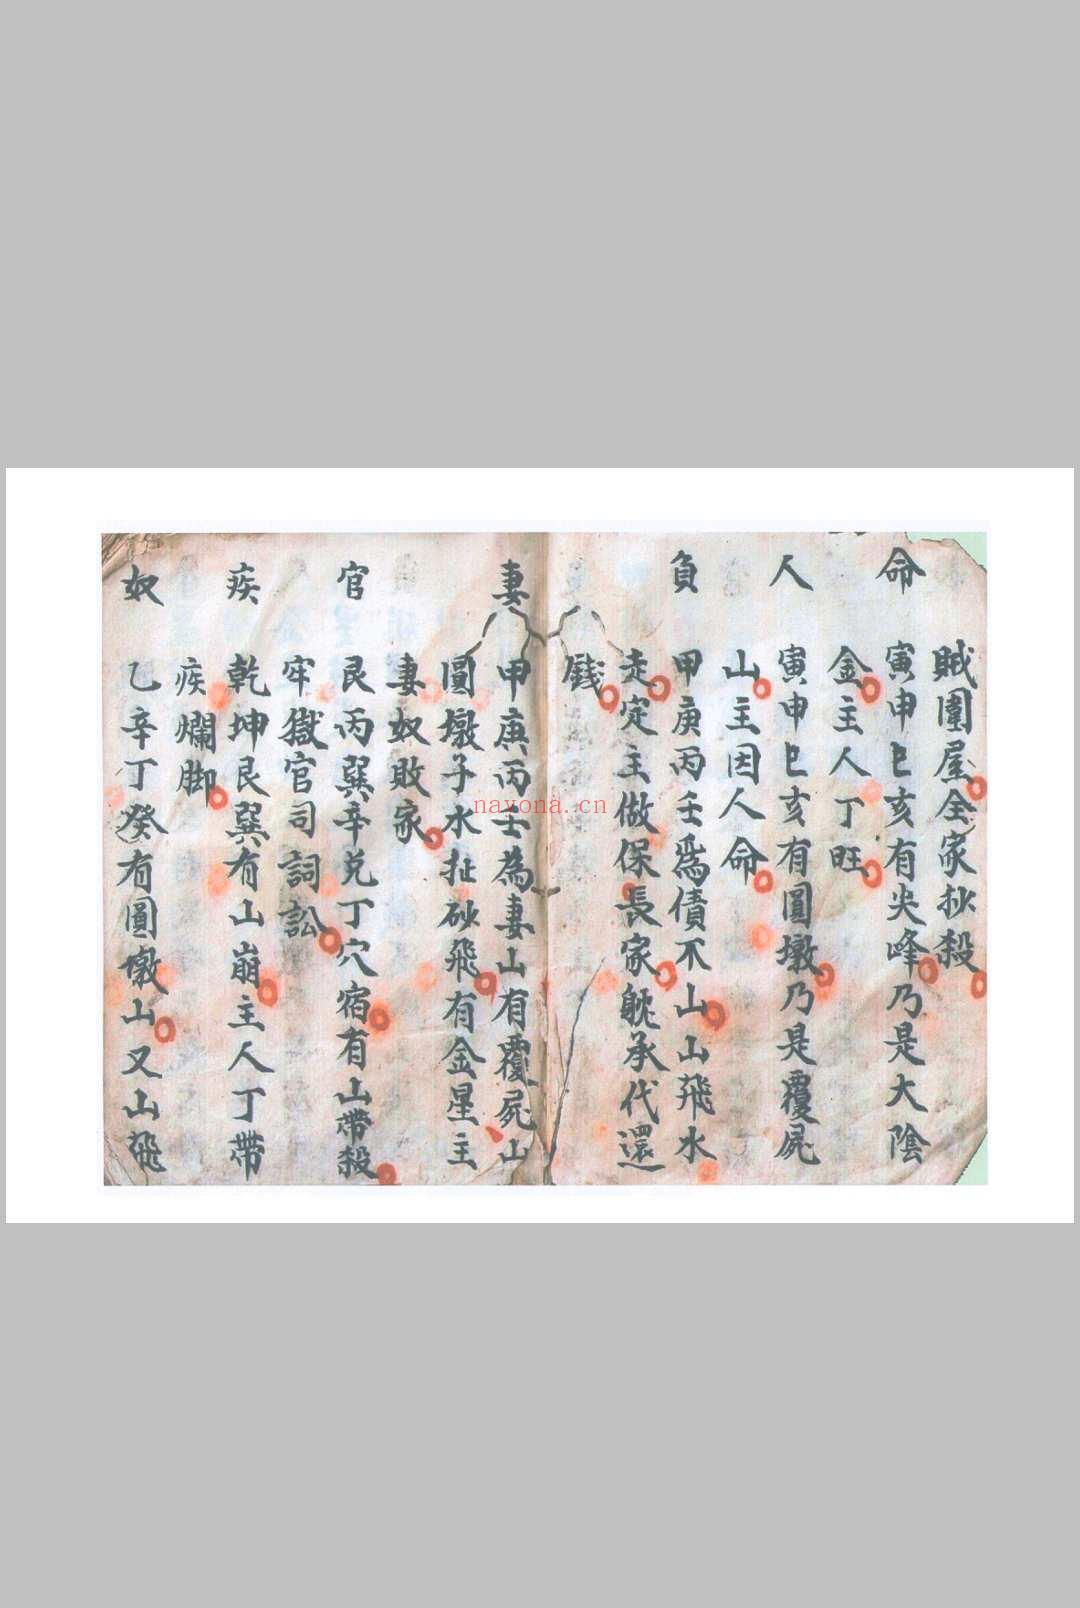 賊圍屋全家抄殺
命 寅申巳亥有尖峰乃是大陰
金主人丁旺
人 寅申巳亥有圓墩乃是覆屍
山主因人命
負 甲庚丙壬為債不山山飛水
走定主做保長家躭承代還
錢
妻 甲庚丙壬為妻山有覆屍山
圓墩子水扯砂飛有金星主
妻奴敗家
官 艮丙巽辛兌丁穴宿有山帶殺
牢獄官司詞訟
疾 乾坤艮巽有山崩主人丁帶
疾爛脚
奴 乙辛丁癸有圓墩山又山飛
nayona.cn